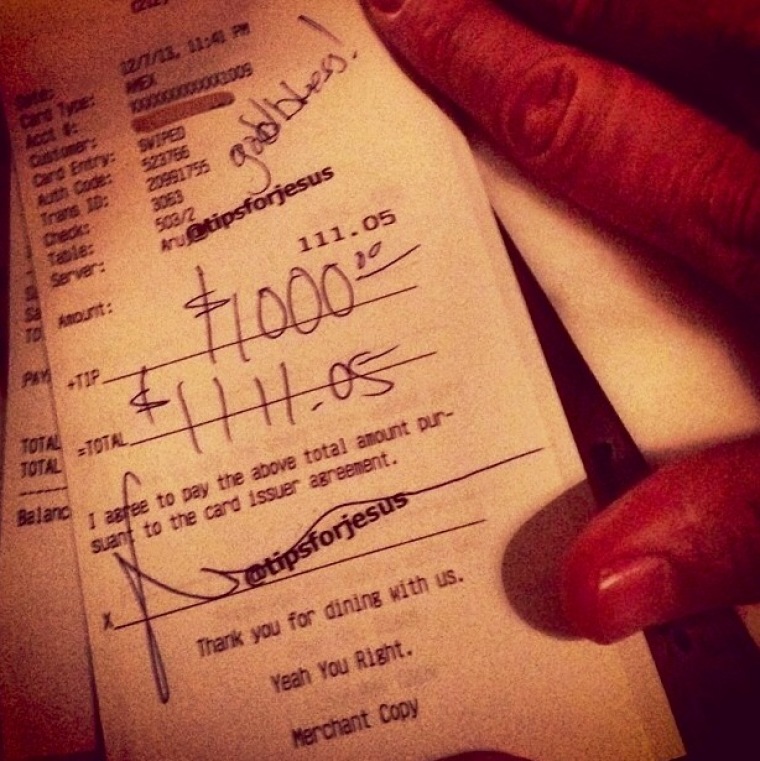 Date: 12/7/13, 11:41 PM
Card Type: AMEX
Acct #: XXXXXXXXXXXX1009
Customer:
Card Entry: SWIPED
Auth Code: 523766
Trans ID: 20991755
Check: 3063
Table: 503/2
Server: Aru
god bless!
@tipsforjesus
Amount: 111.05
+TIP $1000.00
=TOTAL $1111.05
I agree to pay the above total amount pur-
suant to the card issuer agreement.
@tipsforjesus
X
Thank you for dining with us.
Yeah You Right.
Merchant Copy
PAY
TOTAL
TOTAL
Balanc